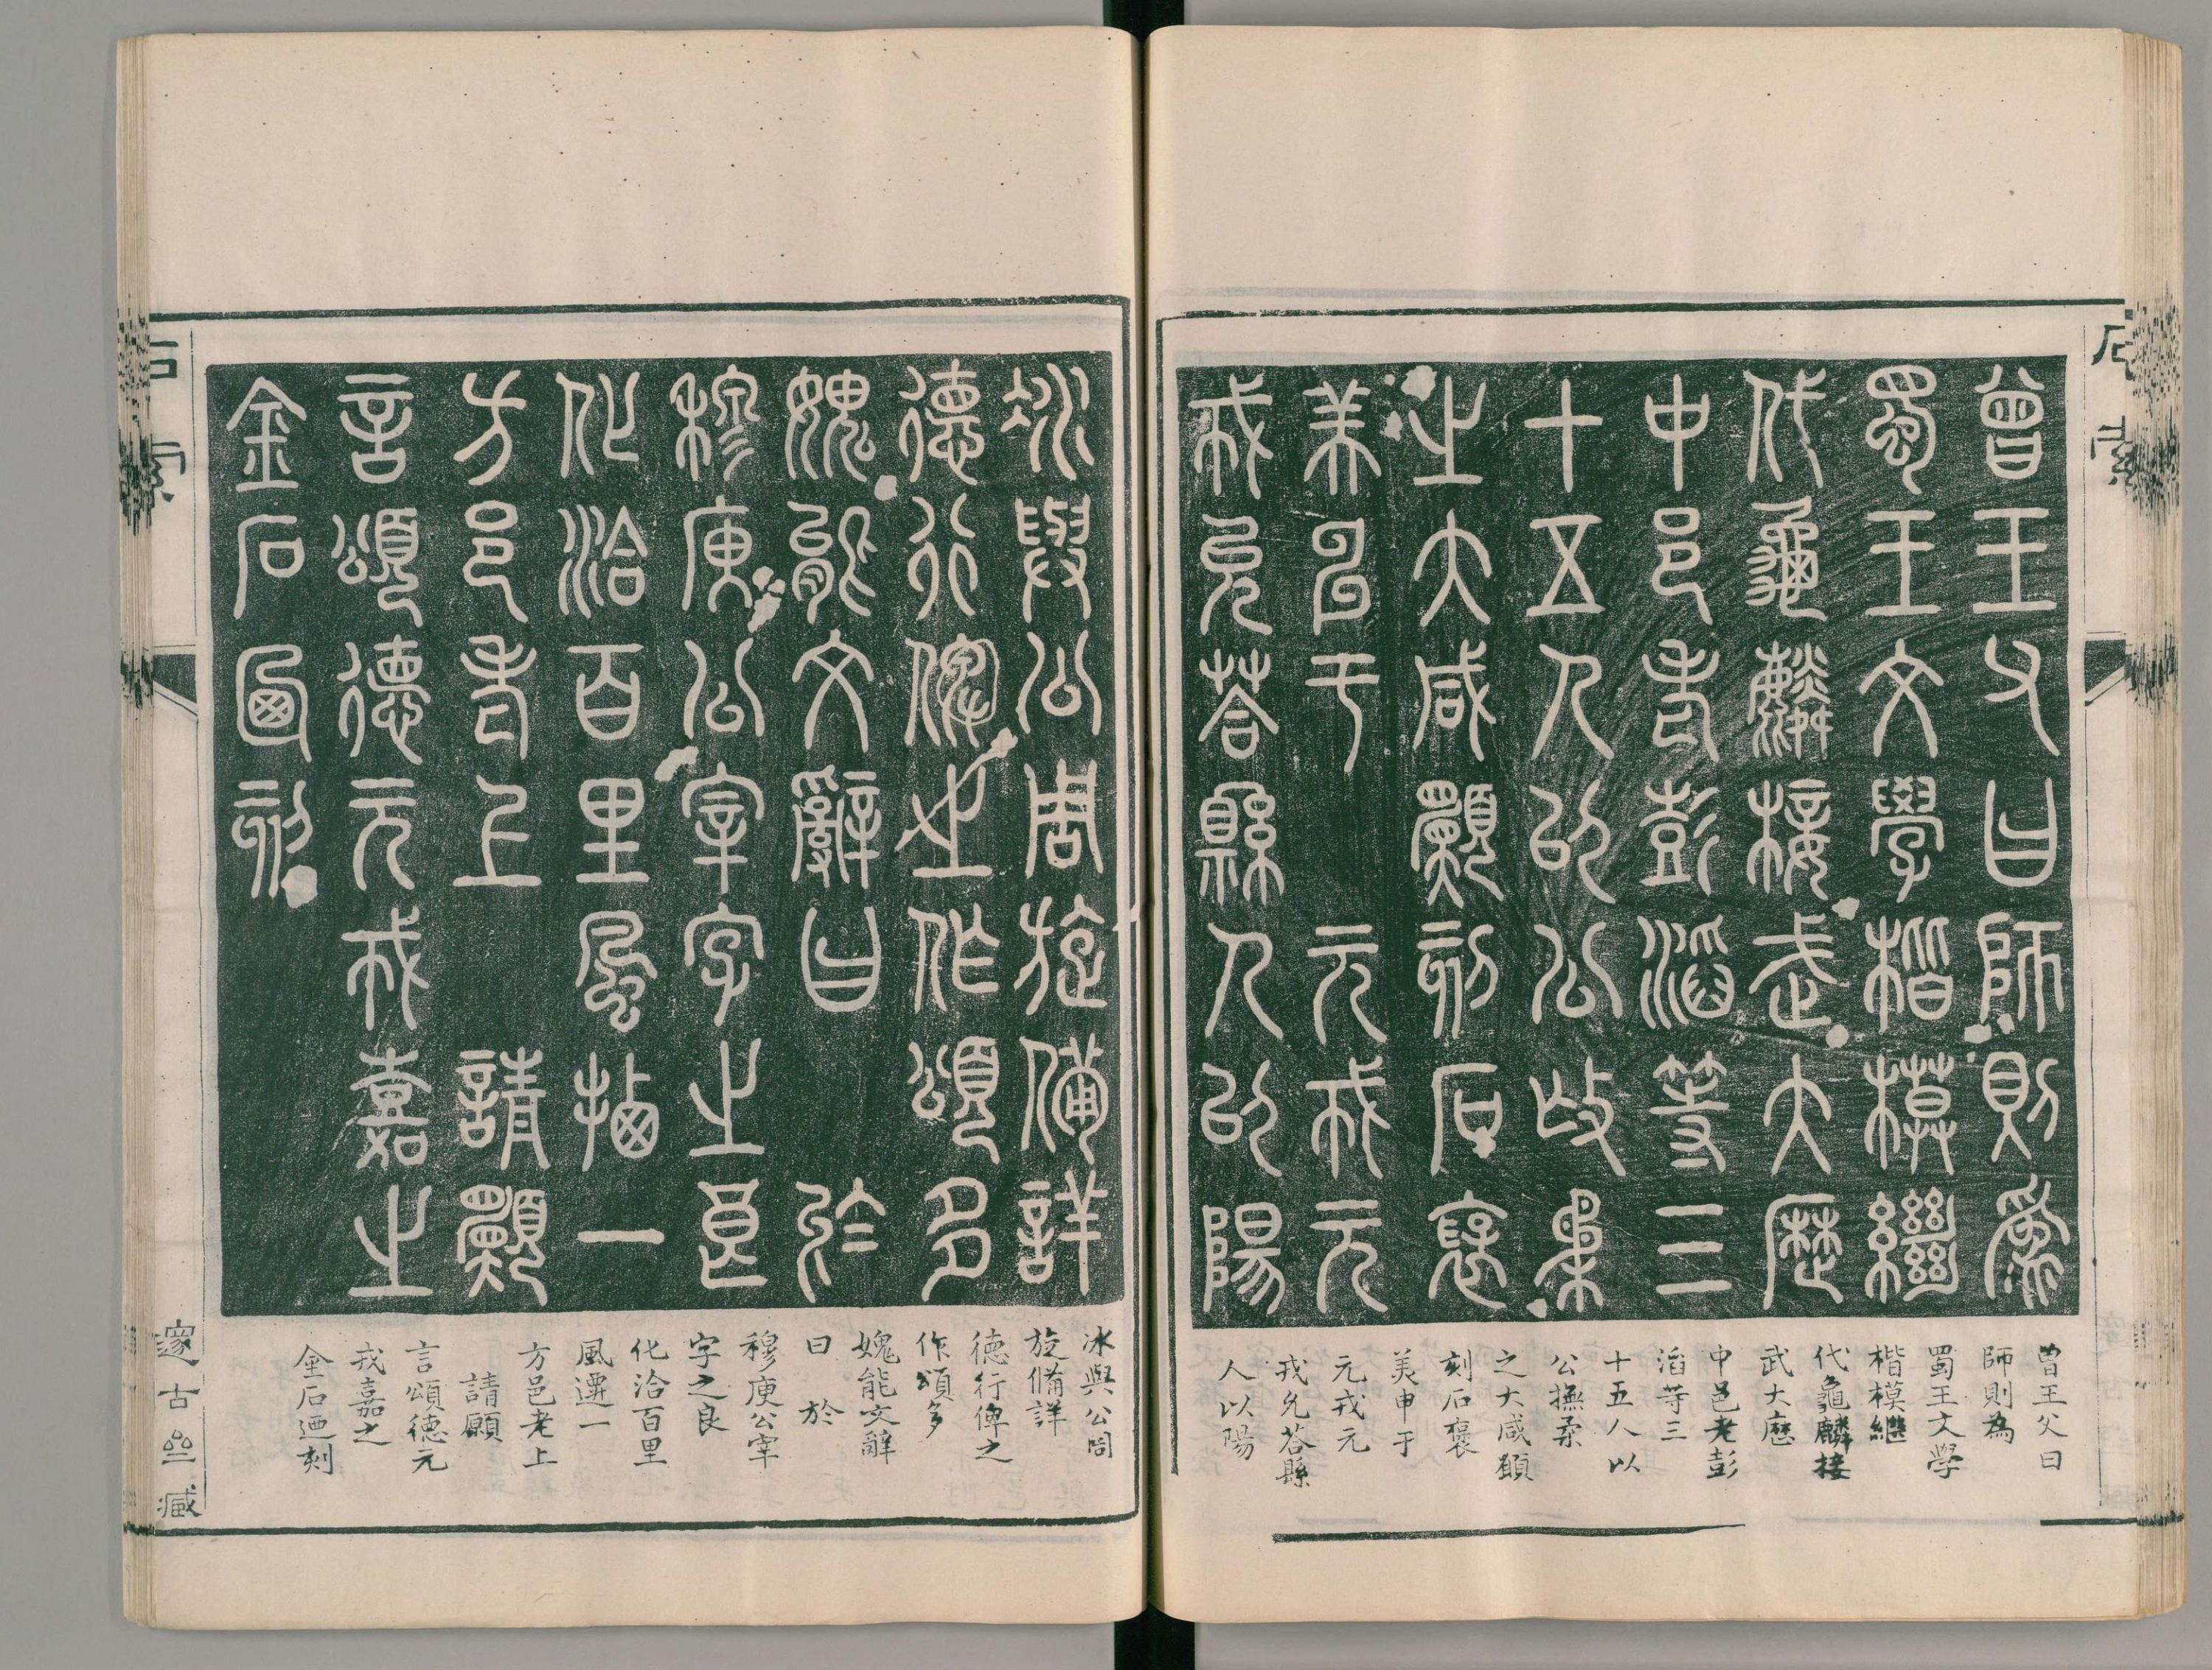 石索
曾王父曰師則爲
蜀王文學楷模繼
代龜麟接武大歷
中邑老彭滔等三
十五人以公撫柔
之大咸願刻石褒
美申于 元戎元
戎允荅縣人以陽
曾王父曰
師則為
蜀王文學
楷模繼
代龜麟接
武大歷
中邑老彭
滔等三
十五人以
公撫柔
之大咸願
刻石褒
美申于
元戎元
戎允荅縣
人以陽
冰與公周旋備詳
德行俾之作頌多
媿能文辭曰 於
穆庾公宰字之良
化洽百里風遷一
方邑老上 請願
言頌德元戎嘉之
金石廼刻
冰與公周
旋備詳
德行俾之
作頌多
媿能文辭
曰 於
穆庾公宰
字之良
化洽百里
風遷一
方邑老上
請願
言頌德元
戎嘉之
金石廼刻
石索
邃古 藏